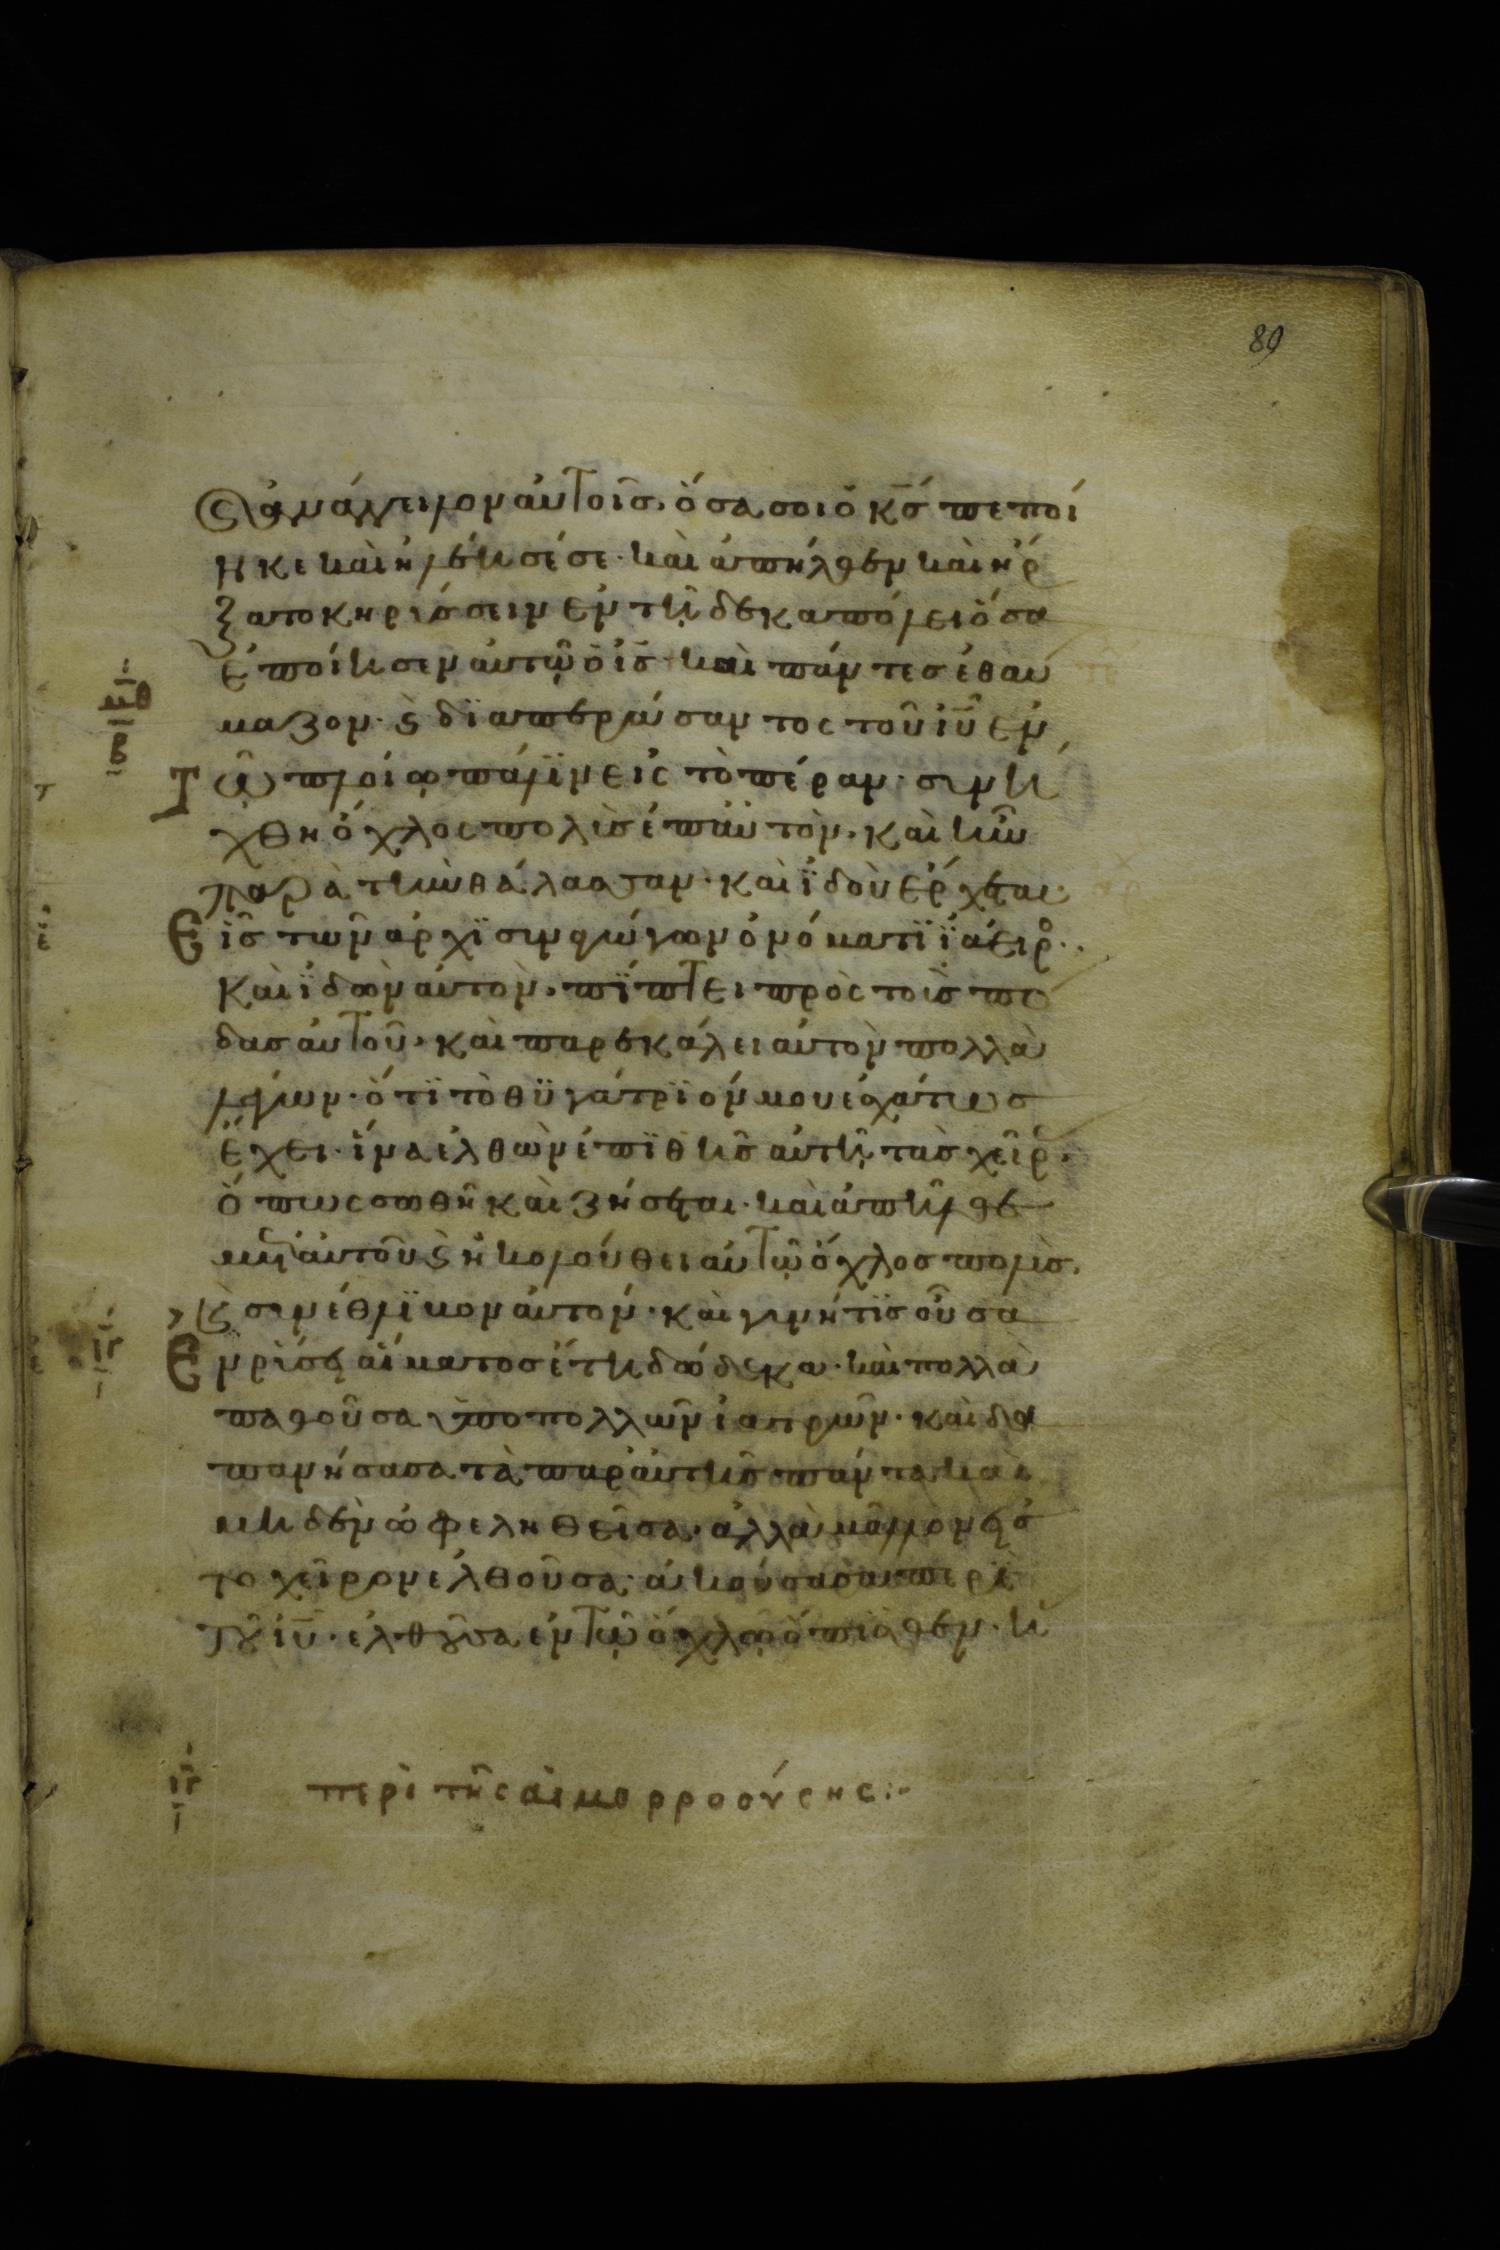 89
ϛ ἀνάγγειλον αὐτοῖσ· ὅσα σοι ὁ κ̅σ̅ πεποί
ηκε καὶ ἠλέησέ σε· καὶ ἀπῆλθεν καὶ ἤρ
ξατο κηρίσσειν ἐν τῆ δεκαπόλει ὅσα
ἐποίησεν αὐτῶ ὁ ι̅σ̅ καὶ πάντεσ ἐθαύ
μαζον· ϛ διαπεράσαντος τοῦ ι̅υ̅ ἐν
μθ
β
Τῶ πλοίω πάλιν εἰς τὸ πέραν· σινή
χθη ὄχλος πολὶσ ἐπ αὐτὸν· καὶ ἦν
παρὰ τὴν θάλασσαν· καὶ ἰδοὺ ἔρχεται
Εἷσ τῶν ἀρχισιναγώγων ὀνόματι ϊάειρο·
καὶ ϊδὼν αὐτὸν· πίπτει πρὸς τοὶσ πό
δασ αὐτοῦ· καὶ παρεκάλει αὐτὸν πολλὰ
λέγων· ὅτι τὸ θυγάτριόν μου ἐσχάτωσ
ἔχει· ἵνα ἐλθὼν ἐπιθῆσ αὐτῆ τὰσ χεῖρ·
ὅπως σωθῆ καὶ ζήσεται· καὶ ἀπῆλθε
μετ αὐτοῦ ϛ ἠκολούθει αὐτῶ ὄχλοσ πολὶσ·
ϛ σινέθλιβον αὐτόν· καὶ γινή τισ οὖσα
ιγ
Ἐν ρίσει αἵματοσ ἔτη δώδεκα· καὶ πολλὰ
παθοῦσα ὑπο πολλῶν ἰατρῶν· καὶ δα
πανήσασα τὰ παρ αὐτῆσ πάντα καὶ
μηδὲν ὠφεληθεῖσα· ἀλλὰ μᾶλλον εἰσ
το χεῖρον ἐλθοῦσα· ἀκούσασα περὶ
τοῦ ι̅υ̅· ἐλθοῦσα ἐν τῶ ὄχλω ὄπισθεν· ἥ
ιγ περὶ τῆς αἱμορροούσης:~